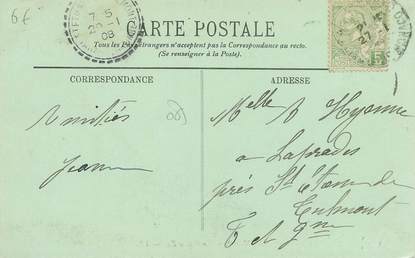 6€
7 5
20 -1
08
CARTE POSTALE
Tous les Pays étrangers n'acceptent pas la Correspondance au recto.
(Se renseigner à la Poste).
CORRESPONDANCE
ADRESSE
Amitiés
Jeanne
Melle
a Laprades
près St Etienne de
Tulmont
T et Gne
5